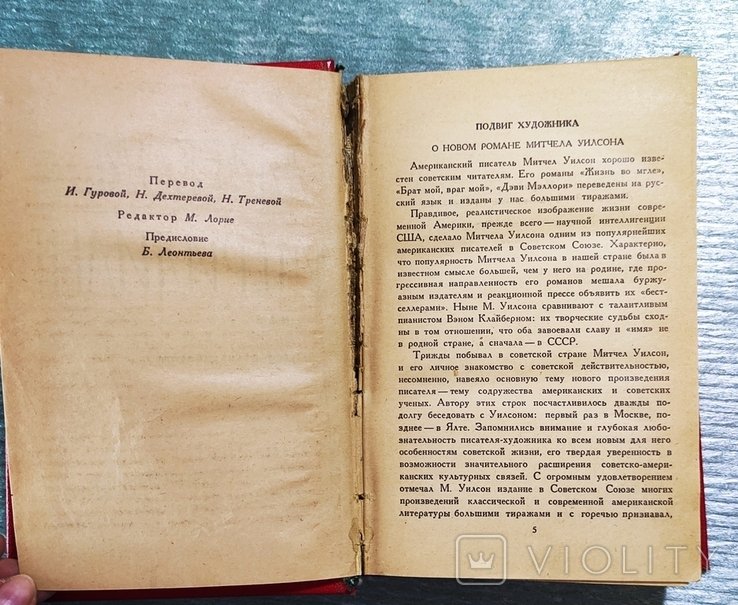 Перевод
И. Гуровой, Н. Дехтеревой, Н. Треневой
Редактор М. Лорие
Предисловие
Б. Леонтьева
ПОДВИГ ХУДОЖНИКА
О НОВОМ РОМАНЕ МИТЧЕЛА УИЛСОНА
Американский писатель Митчел Уилсон хорошо извес-
тен советским читателям. Его романы «Жизнь во мгле»,
«Брат мой, враг мой», «Дэви Мэллори» переведены на рус-
ский язык и изданы у нас большими тиражами.
Правдивое, реалистическое изображение жизни совре-
менной Америки, прежде всего — научной интеллигенции
США, сделало Митчела Уилсона одним из популярнейших
американских писателей в Советском Союзе. Характерно,
что популярность Митчела Уилсона в нашей стране была в
известном смысле большей, чем у него на родине, где про-
грессивная направленность его романов мешала буржу-
азным издателям и реакционной прессе объявить их «бест-
селлерами». Ныне М. Уилсона сравнивают с талантливым
пианистом Вэном Клайберном: их творческие судьбы сход-
ны в том отношении, что оба завоевали славу и «имя» не
в родной стране, а сначала — в СССР.
Трижды побывал в советской стране Митчел Уилсон,
и его личное знакомство с советской действительностью,
несомненно, навеяло основную тему нового произведения
писателя — тему содружества американских и советских
ученых. Автору этих строк посчастливилось дважды по-
долгу беседовать с Уилсоном: первый раз в Москве, по-
зднее — в Ялте. Запомнились внимание и глубокая любо-
знательность писателя-художника ко всем новым для него
особенностям советской жизни, его твердая уверенность в
возможности значительного расширения советско-амери-
канских культурных связей. С огромным удовлетворением
отмечал М. Уилсон издание в Советском Союзе многих
произведений классической и современной американской
литературы большими тиражами и с горечью признавал,
5
VIOLITY